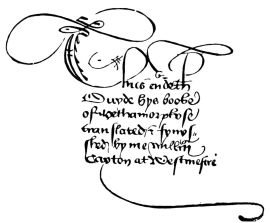 Thus endeth
Ouyde hys booke
of Methamorphose
translated & fynys
shed by me Willm̄
Caxton at Westmestre